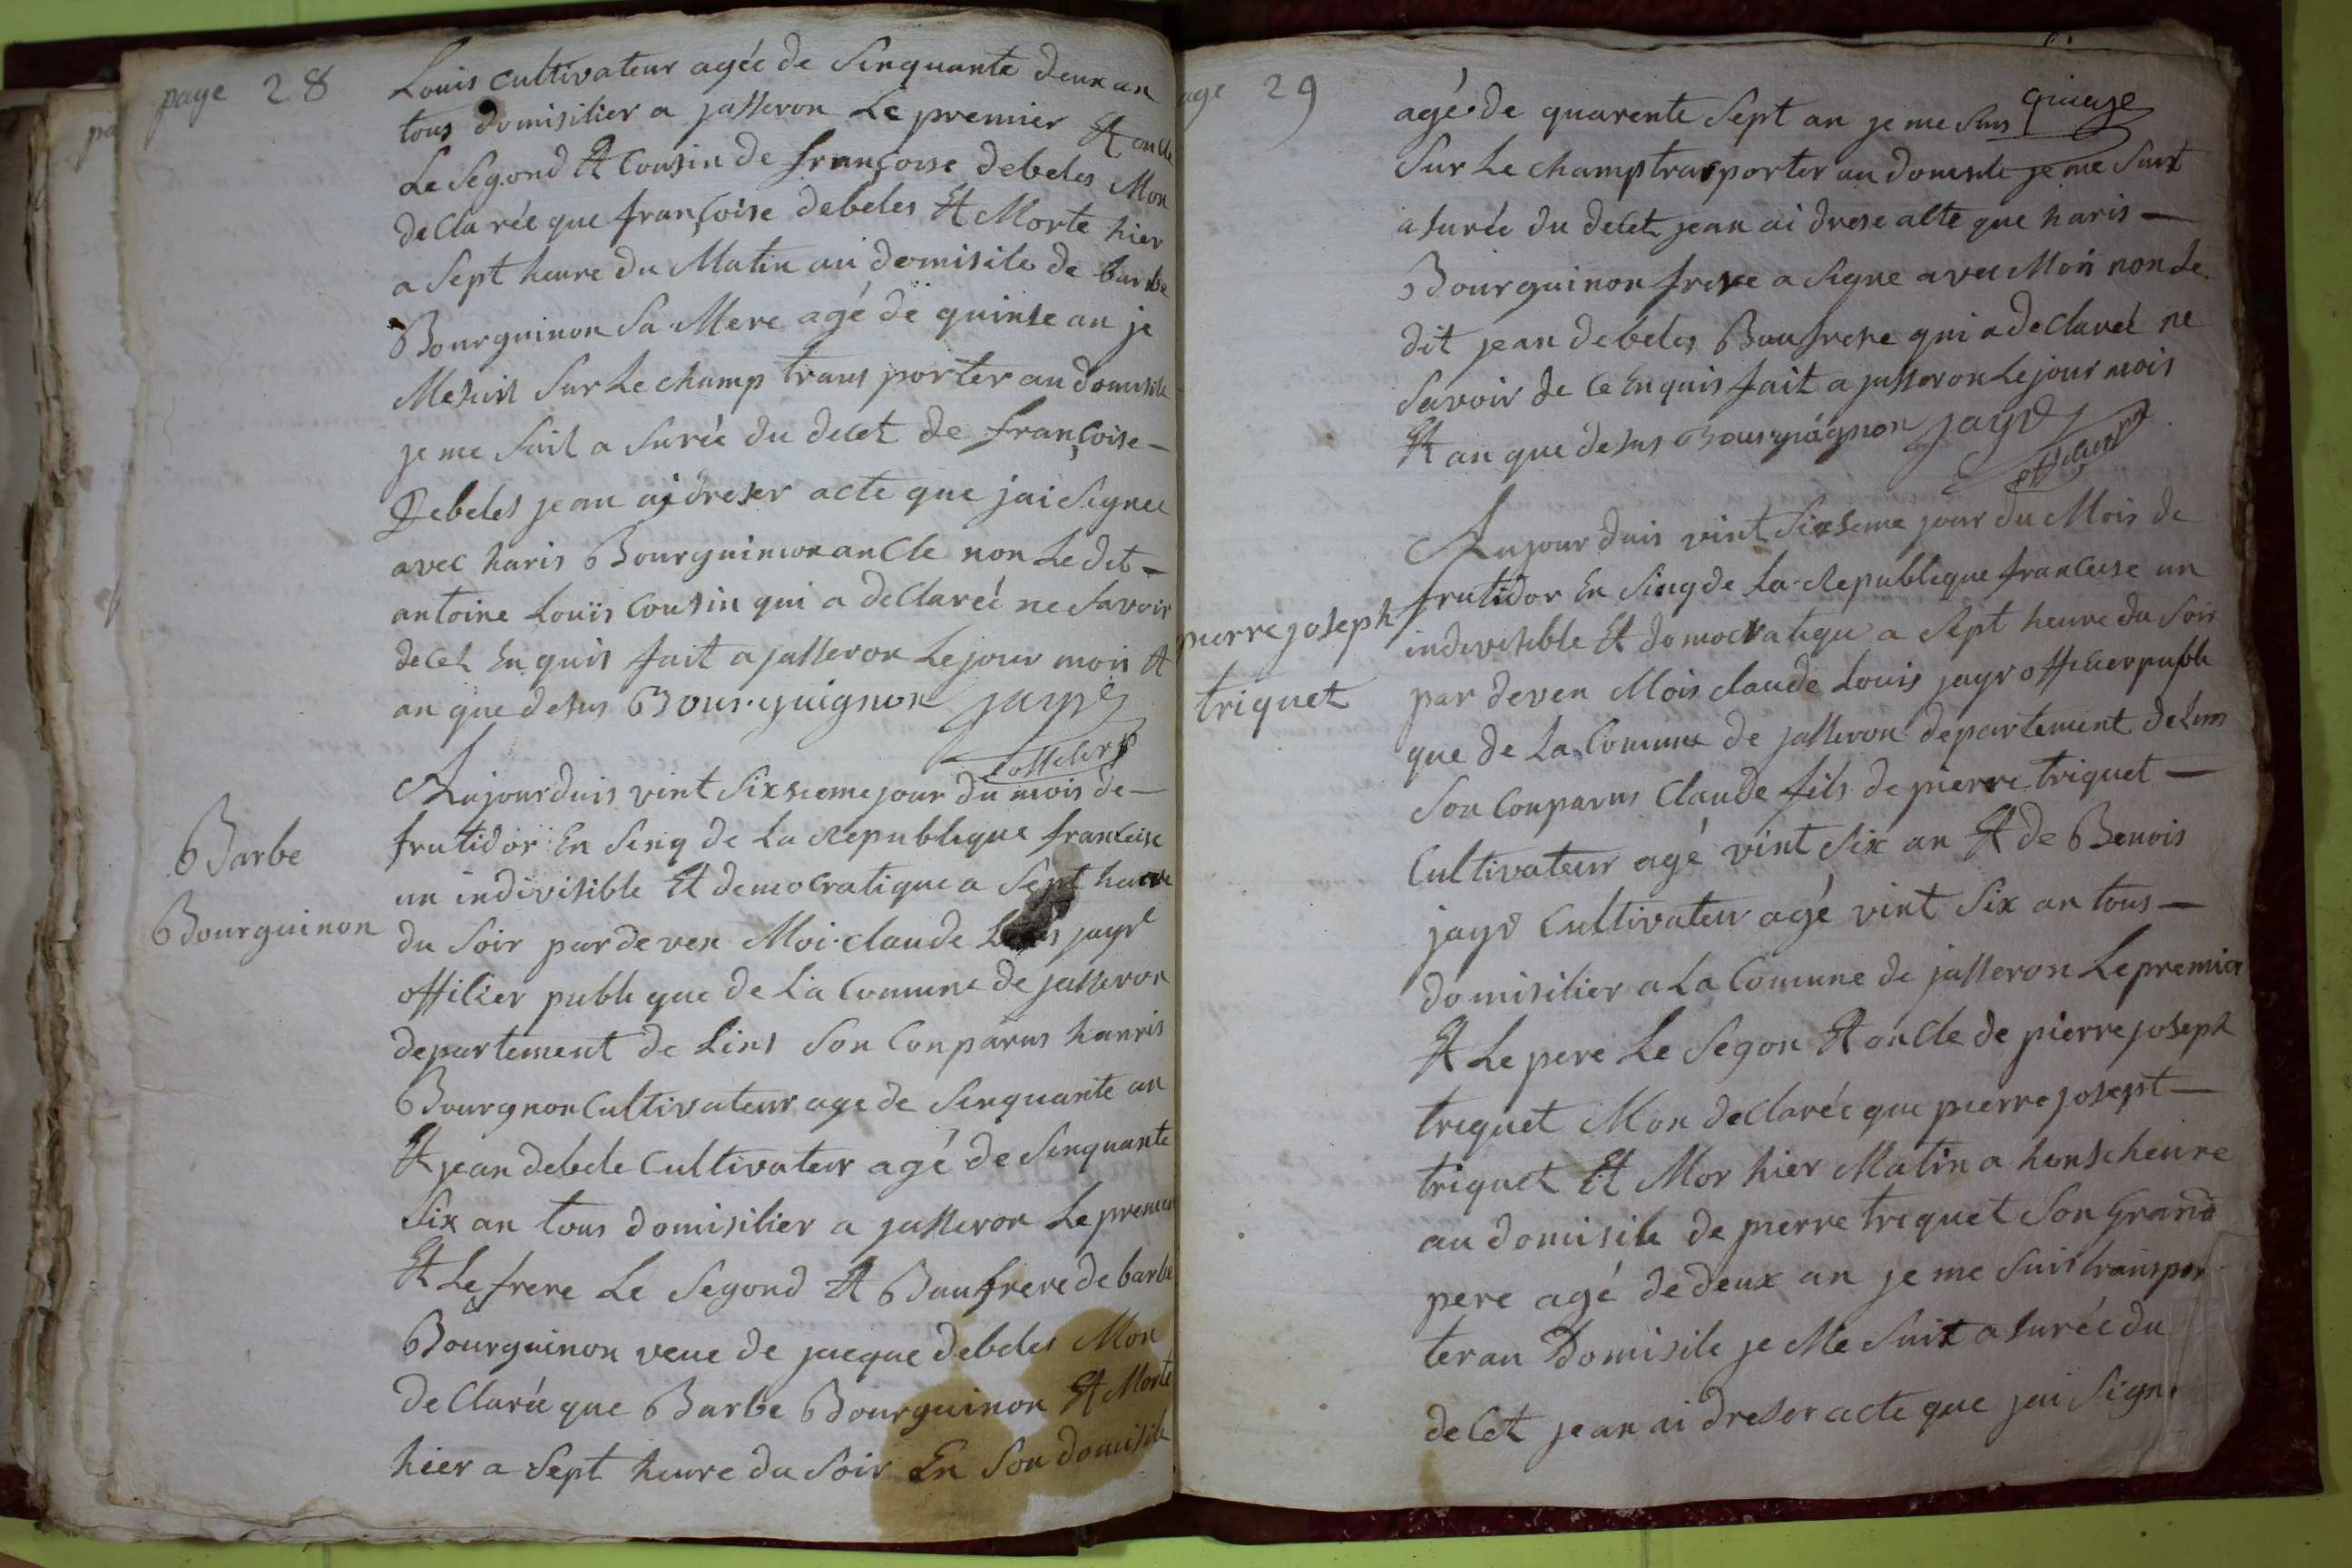 page 28
Louis cultivateur agée de Sinquante deux an
tous domisilier a jasseron Le premier Et oncle
Le Segond Et Cousin de françoise debeles Mon
declarée que françoise debeles Et Morte hier
a Sept heure du Matin au domisile de barbe
Bourguinon Sa Mere agé de quinse an je
Mesuis Sur Le champ trans porter au domisile
je me Suit a Surée du decet de françoise —
Debeles jean ai dreser acte que jai Signee
avec haris Bourguinon ancle non Le dit —
antoine Louis Cousin qui a declareé ne Savoir
de Cet Enquis fait a jasseron Le jour mois Et
an que desus Bourguignon jayr
officier p
Barbe
Bourguinon
Aujourduis vint Sixsieme jour du mois de —
frutidor En Sinq de La Republique francaise
un indivisible Et democratique a Sept heure
du Soir par deven Moi claude Louis jayr
offilier publi que de La Comune de jasseron
departement de Lins Son Conparus hanris
Bourgnon Cultivateur age de Sinquante an
Et jean debele Cultivateur agé de Sinquante
Six an tous domisilier a jasseron Le premier
Et Le frere Le Segond Et Baufrere de barbe
Bourguinon veue de jacque debeles Mon
declarée que Barbe Bourguinon Et Morte
hier a Sept heure du Soir En Son domisile
age 29
agé de quarente Sept an je me Suis
Sur Le champ trasporter au domisile je me Suit
a Surée du decet jean ai drese alte que haris —
Bourguinon frere a Signe avec Moi non Le
dit jean debeles Baufrere qui a declareé ne
Savoir de Ce Enquis fait a jasseron Le jour mois
Et an que desus Bourguignon jayr
officier p
pierre joseph
triquet
Aujour duis vint Sixseme jour du Mois de
frutidor En Sinq de La Republique francaise un
indivisible Et domocratique a Sept heure du Soir
par deven Mois claude Louis jayr officier publi
que de La Comune de jasseron departement de Lins
Son Conparus Claude fils de pierre triquet —
Cultivateur agé vint Six an Et de Benois
jayr Cultivateur agé vint Six an tous —
domisilier a La Comune de jasseron Le premier
Et Le pere Le Segon Et oncle de pierre joseph
triquet Mon declarée que pierre josept —
triquet Et Mor hier Matin a honse heure
au domisile de pierre triquet Son Grand
pere agé de deux an je me Suis transpor
ter au Domisile je Me Suit a Surée du
de Cet jean ai dreser acte que jai Sign